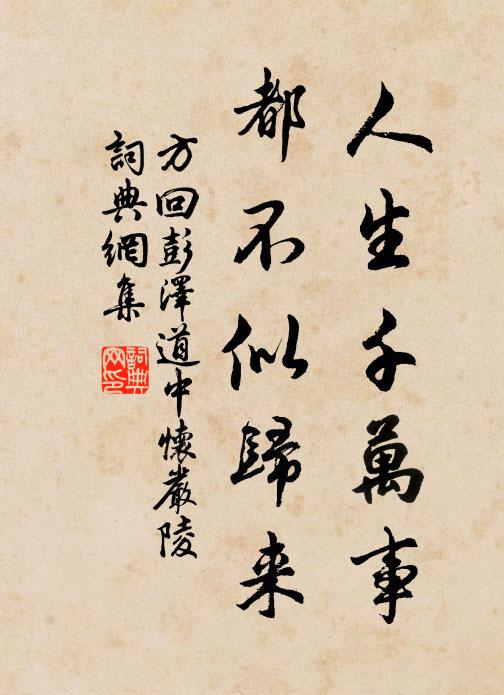 人生千萬事
都不似歸来
方回彭澤道中懷嚴陵
詞典網集
詞典網印